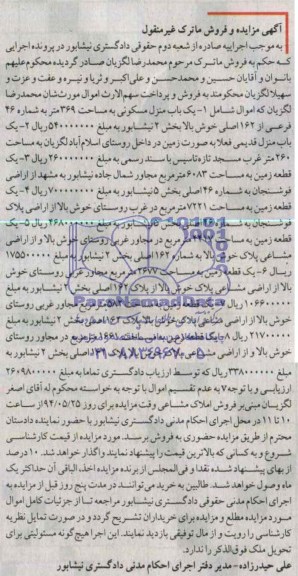 آگهی مزایده و فروش ماترک غیرمنقول
به موجب اجراییه صادره از شعبه دوم حقوقی دادگستری نیشابور در پرونده اجرایی
که حکم به فروش ماترک مرحوم محمدرضا لگزیان صادر گردیده محکوم‌علیهم
بانوان و آقایان حسین و محمدحسن و علی‌اکبر و ثریا و نیره و عفت و عزت و
سهیلا لگزیان محکومند به فروش و پرداخت سهم‌الارث اموال مورث‌شان محمدرضا
لگزیان که اموال شامل ۱- یک باب منزل مسکونی به مساحت ۳۶۹ متر به شماره ۴۶
فرعی از ۱۶۲ اصلی خوش بالا بخش ۲ نیشابور به مبلغ ۵۴۰۰۰۰۰۰۰ ریال ۲- یک
باب منزل قدیمی فعلا به صورت زمین در داخل روستای اسلام‌آباد لگزیان به مساحت
۲۶۰ متر غرب مسجد تازه تاسیس با سند رسمی به مبلغ ۲۶۰۰۰۰۰۰ ریال ۳- یک
قطعه زمین به مساحت ۶۰۸۳ مترمربع مجاور شمال جاده نیشابور به مشهد از اراضی
فوشنجان به شماره ۴۶ اصلی بخش ۵ نیشابور به مبلغ ۷۰۰۰۰۰۰۰۰ ریال ۴- یک
قطعه زمین به مساحت ۷۲۲۱ مترمربع در غرب روستای خوش بالا از اراضی پلاک
فوشنجان به شماره
قطعه زمین به مساحت مترمربع در مجاور غربی روستای خوش بالا و از اراضی
مشاعی پلاک خوش بالا به شماره ۱۶۲ اصلی بخش ۲ نیشابور به مبلغ ۱۷۵۵۰۰۰۰۰
ریال ۶- یک قطعه زمین به مساحت مترمربع مجاور غربی روستای خوش
بالا از اراضی مشاعی پلاک خوش بالا پلاک ۱۶۲ اصلی بخش ۲ نیشابور به مبلغ
مجاور غربی روستای
خوش بالا از اراضی مشاعی پلاک خوش بالا پلاک ۱۶۲ اصلی بخش ۲ نیشابور به مبلغ
در مجاور روستای
خوش بالا و از اراضی مشاعی اصلی بخش ۲ نیشابور به
مبلغ ۳۳۸۰۰۰۰۰۰ ریال که توسط ارزیاب دادگستری تماما به مبلغ ۲۶۰۹۸۰۰۰۰۰
ارزیابی و با توجه به عدم تقسیم اموال با توجه به خواسته محکوم له آقای اصغر
لگزیان مبنی بر فروش املاک مشاعی وقت مزایده برای روز ۹۴/۰۵/۲۵ از ساعت
۱۰ تا ۱۱ در محل اجرای احکام مدنی دادگستری نیشابور با حضور نماینده دادستان
محترم از طریق مزایده حضوری به فروش برسد. مورد مزایده از قیمت کارشناسی
شروع و به کسانی که بالاترین قیمت را پیشنهاد نمایند واگذار خواهد شد. ۱۰ درصد
از بهای پیشنهاد شده نقدا و فی‌المجلس از برنده مزایده اخذ، الباقی آن حداکثر یک
ماه وصول خواهد شد. طالبین به خرید می‌توانند در مدت پنج روز قبل از مزایده به
اجرای احکام مدنی حقوقی دادگستری نیشابور مراجعه تا از جزئیات کامل اموال
مورد مزایده مطلع و مزایده برای خریداران تشریح گردد و در صورت تمایل نظریه
کارشناسی را رویت و از مال توقیفی بازدید نمایند. این اجرا هیچ‌گونه مسئولیتی برای
تحویل ملک فوق‌الذکر را ندارد.
علی حیدرزاده- مدیر دفتر اجرای احکام مدنی دادگستری نیشابور